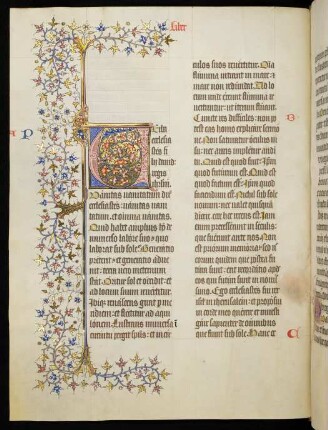 liber
Erba
ecclesia
stes fi
lii david
regis
Vanitas vanitatum dixit
ecclesiastes: vanitas vani
tatum. et omnia vanitas.
Quid habet amplius
labore suo quo
laborat sub sole? Generatio
preterit et generatio adue
nit: terra
Oritur sol et occidit. et
ad locum suum revertitur
meri
diem: et flectitur ad aqui
lonem. Lustrans universa
circuitu pergit spiritus: et in cir
culos suos revertitur. Omnia
flumina intrant in mare: et
mare non redundat. Ad lo
cum unde exeunt flumina re
vertuntur: ut iterum fluant.
Cuncte res difficiles: non po
test eas homo explicare sermo
ne. Non saturatur oculus vi
su: nec auris impletur audi
tu. Quid est quod fuit:
quod futurum est. Quid est
quod factum est:
faciendum est. Nichil sub sole
novum: nec valet quisquam
dicere: ecce hoc recens est. Jam
enim precessit in seculis:
que fuerunt ante nos. Non
est priorum memoria: sed nec
eorum quidem que postea fu
tura sunt: erit recordatio apud
eos qui futuri sunt in novissi
Ego ecclesiastes fui rex
israel in iherusalem: et proposui
in corde meo querere et investi
gare sapienter de omnibus
que fiunt sub sole. Hanc